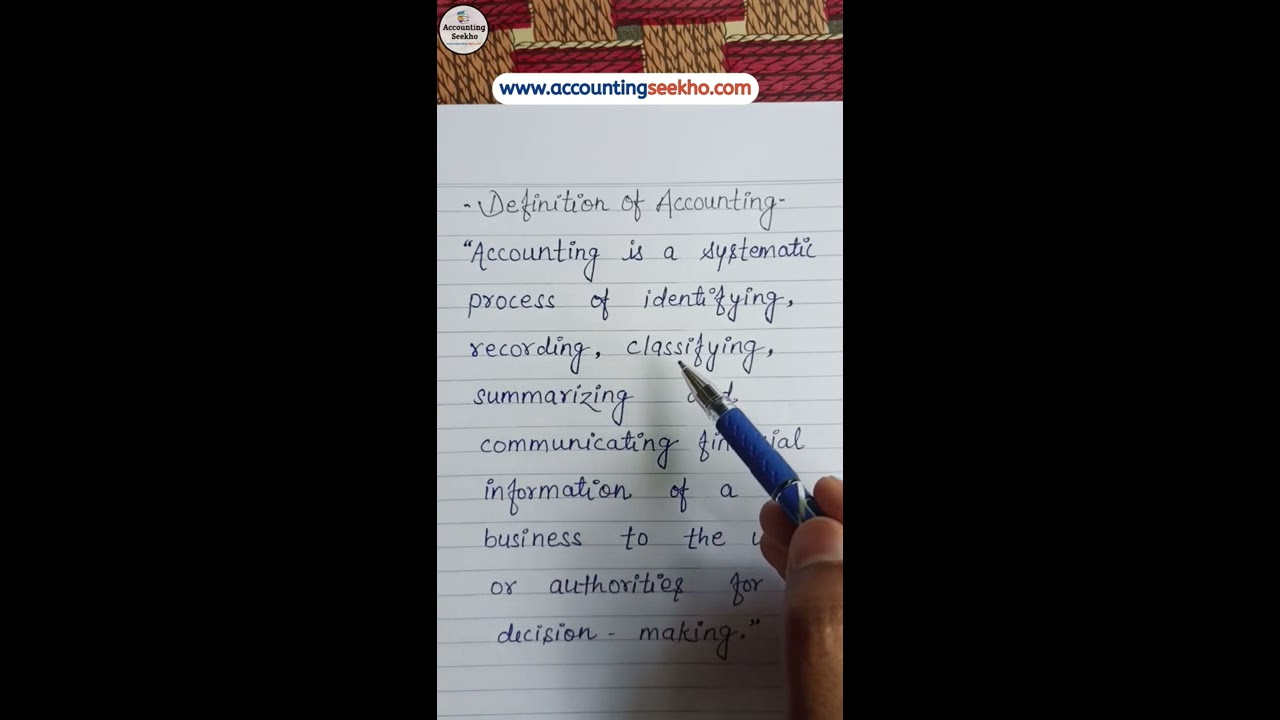 Accounting
Seekho
www.accountingseekho.com
- Definition of Accounting -
"Accounting is a systematic
process of identifying,
recording, classifying,
summarizing
communicating
information of a
business to the
or authorities for
decision - making."